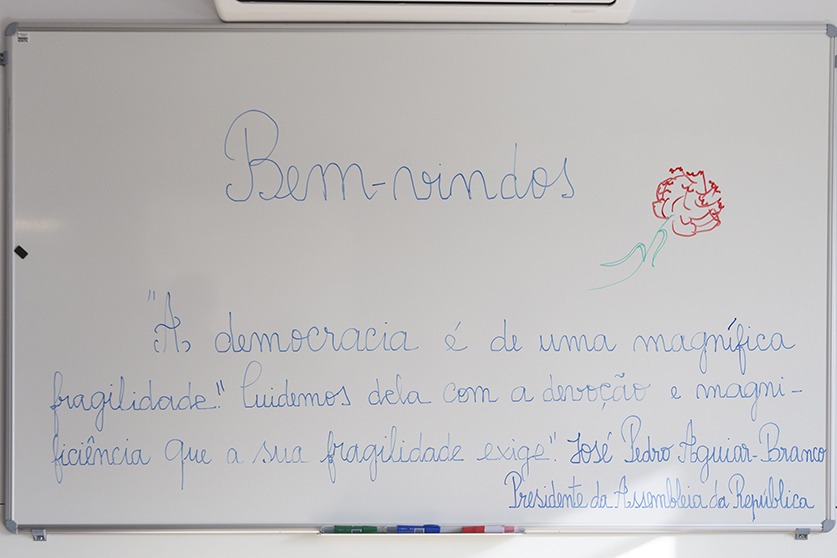 Bem-vindos
"A democracia é de uma magnífica
fragilidade." Cuidemos dela com a devoção e magni-
ficiência que a sua fragilidade exige". José Pedro Aguiar-Branco
Presidente da Assembleia da República